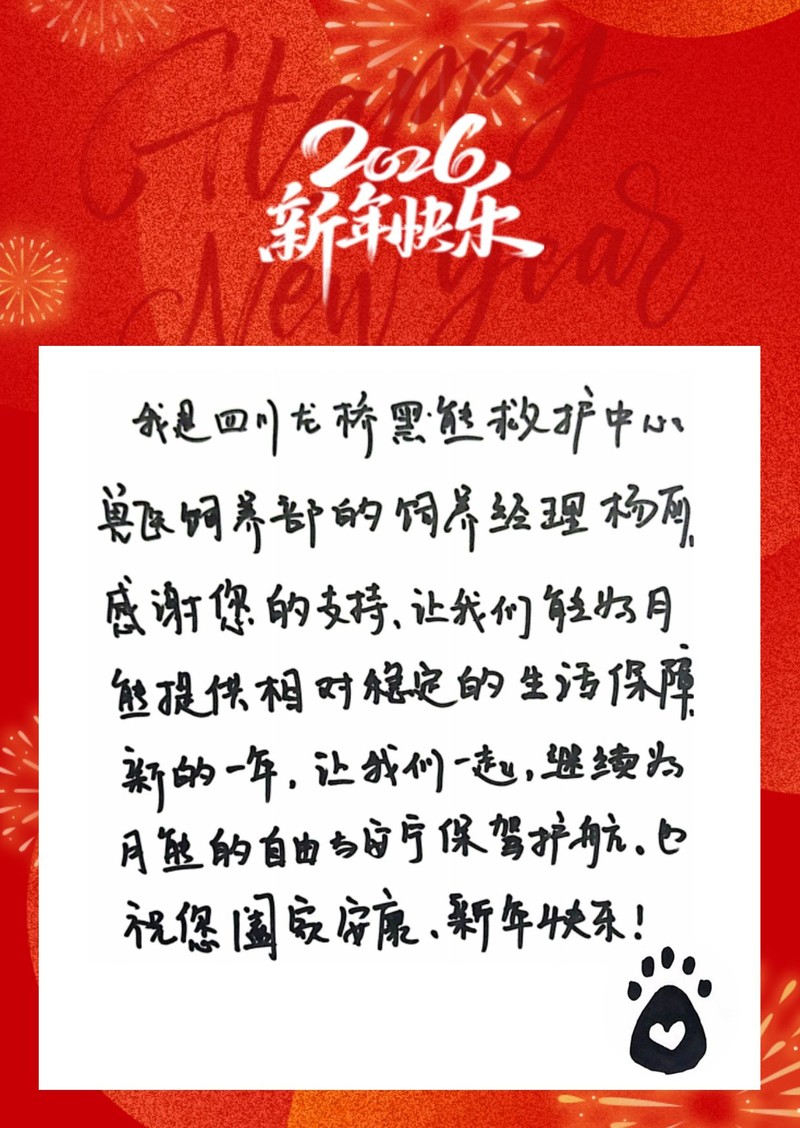 Happy
2026
新年快乐
New year
我是四川龙桥黑熊救护中心
兽医饲养部的饲养经理杨丽,
感谢您的支持、让我们能为月
熊提供相对稳定的生活保障.
新的一年,让我们一起,继续为
月熊的自由与安宁保驾护航、也
祝您阖家安康、新年快乐!